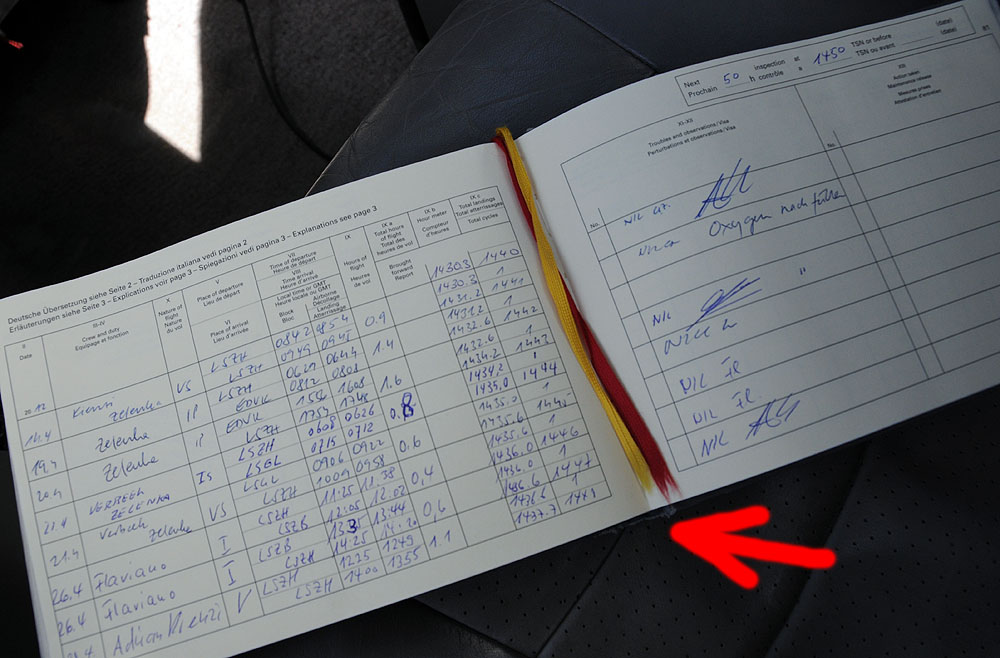 Deutsche Übersetzung siehe Seite 2 – Traduzione italiana vedi pagina 2
Erläuterungen siehe Seite 3 – Explications voir page 3 – Spiegazioni vedi pagina 3 – Explanations see page 3
II
Date
III-IV
Crew and duty
Equipage et fonction
X
Nature of flight
Nature du vol
V
Place of departure
Lieu de départ
VI
Place of arrival
Lieu d'arrivée
VII
Time of departure
Heure de départ
VIII
Time arrival
Heure d'arrivée
Local time or GMT
Heure locale ou GMT
Block
Bloc
Airborne
Décollage
Landing
Atterrissage
IX
Hours of flight
Heures de vol
IX a
Total hours of flight
Total des heures de vol
Brought forward
Report
IX b
Hour meter
Compteur d'heures
IX c
Total landings
Total atterrissages
Total cycles
20 12
Zelenka VS LSZH 0842 0854 0.9 1430.3 1440
LSZH 0949 0941 1430.3 1
14.4 Zelenka LSZH 0621 0644 1.4 1431.2 1441
EDVK 0812 0808 1431.2 1
19.4 Zelenka EDVK 1554 1608 1.6 1432.6 1442
LSZH 1754 1748 1432.6 1
20.4 VERBEEK Is LSZH 0608 0626 0.8 1434.2 1443
ZELENKA LSGL 0715 0712 1434.2
Verbeek VS LSGL 0906 0922 0.6 1435.0 1444
21.4 Zelenka LSZH 1009 0958 1435.0 1
26.4 Flaviano I LSZH 11:25 11.38 0,4 1435.6
LSZB 12:05 12.02 1435.6 1
26.4 Flaviano I LSZB 13:44 0,6 1436.0 1446
LSZH 14:25 1436.0 1
Adrian V LSZH 1225 1249 1.1 1436.6 1447
LSZH 1400 1355 1436.6 1
1437.7
Next 50 h inspection at 1450 TSN or before (date)
Prochain h contrôle à TSN ou avant (date)
XI-XII
Troubles and observations/Visa
Perturbations et observations/Visa
No.
XIII
Action taken
Maintenance release
Mesures prises
Attestation d'entretien
No.
NIL
Oxygen nachfüllen
"
NIL
NIL
NIL
NIL